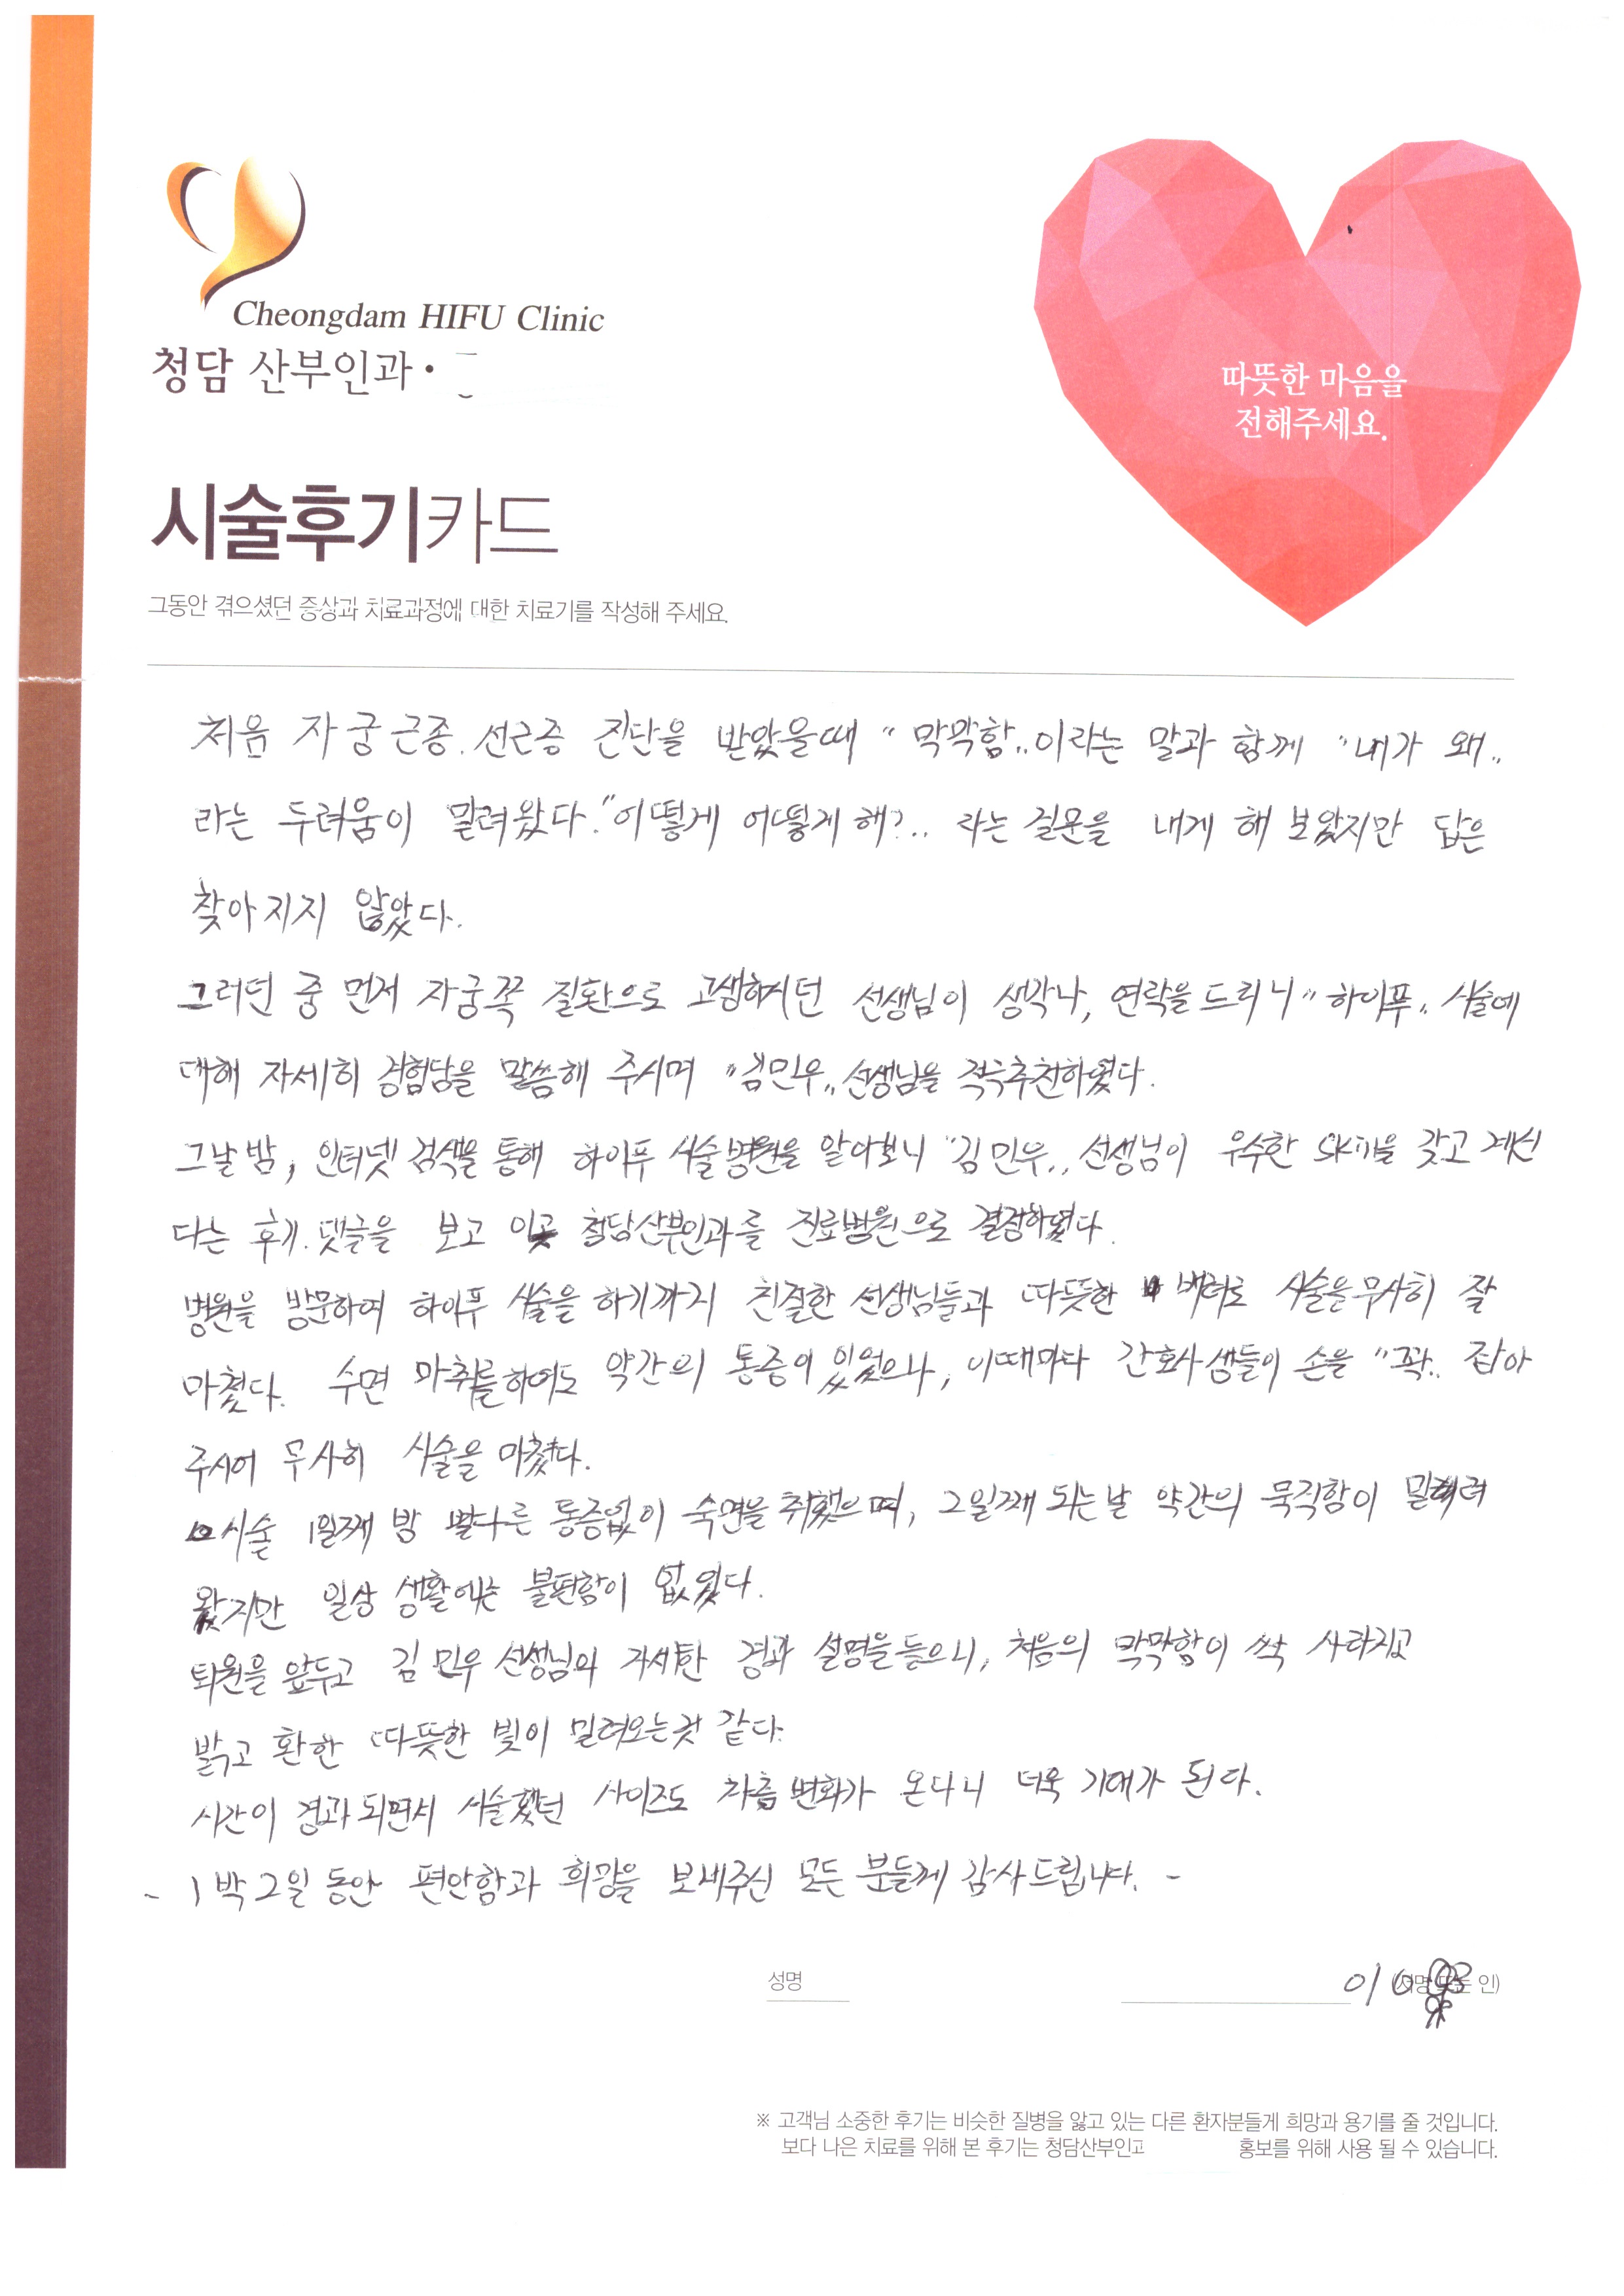 Cheongdam HIFU Clinic
청담 산부인과 •
따뜻한 마음을
전해주세요.
시술후기카드
그동안 겪으셨던 증상과 치료과정에 대한 치료기를 작성해 주세요.
처음 자궁근종. 선근증 진단을 받았을때 "막막함" 이라는 말과 함께 "내가 왜"
라는 두려움이 밀려왔다. "어떻게 어떻게 해?" 라는 질문을 내게 해 보았지만 답은
찾아지지 않았다.
그러던 중 먼저 자궁쪽 질환으로 고생하시던 선생님이 생각나, 연락을 드리니 "하이푸" 시술에
대해 자세히 경험담을 말씀해 주시며 "김민우" 선생님을 적극추천하였다.
그날 밤, 인터넷 검색을 통해 하이푸 시술병원을 알아보니 "김민우" 선생님이 우수한 skill을 갖고 계신
다는 후기. 댓글을 보고 이곳 청담산부인과를 진료병원으로 결정하였다.
병원을 방문하여 하이푸 시술을 하기까지 친절한 선생님들과 따뜻한 배려로 시술을 무사히 잘
마쳤다. 수면 마취를 하여도 약간의 통증이 있었으나, 이때마다 간호사 샘들이 손을 "꽉" 잡아
주시어 무사히 시술을 마쳤다.
시술 1일째 밤 별다른 통증없이 숙면을 취했으며, 2일째 되는날 약간의 묵직함이 밀려
왔지만 일상 생활에는 불편함이 없었다.
퇴원을 앞두고 김민우 선생님의 자세한 경과 설명을 들으니, 처음의 막막함이 싹 사라지고
밝고 환한 따뜻한 빛이 밀려오는것 같다.
시간이 경과 되면서 시술했던 사이즈도 차츰 변화가 온다니 더욱 기대가 된다.
- 1박 2일 동안 편안함과 희망을 보내주신 모든 분들께 감사드립니다. -
성명 이 (서명 또는 인)
※ 고객님 소중한 후기는 비슷한 질병을 앓고 있는 다른 환자분들게 희망과 용기를 줄 것입니다.
보다 나은 치료를 위해 본 후기는 청담산부인과 홍보를 위해 사용 될 수 있습니다.